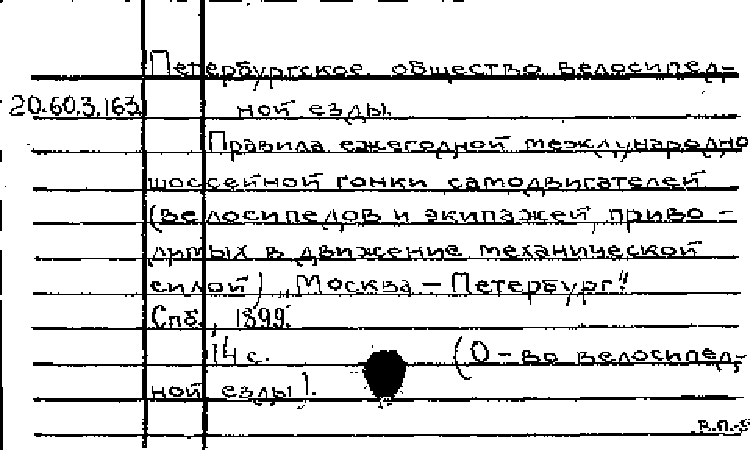 Петербургское общество велосипед-
20.60.3.163 ной езды.
Правила ежегодной международно
шоссейной гонки самодвигателей
(велосипедов и экипажей, приво-
димых в движение механической
силой) „Москва – Петербург."
Спб., 1899.
14 с. (О-во велосипед-
ной езды).